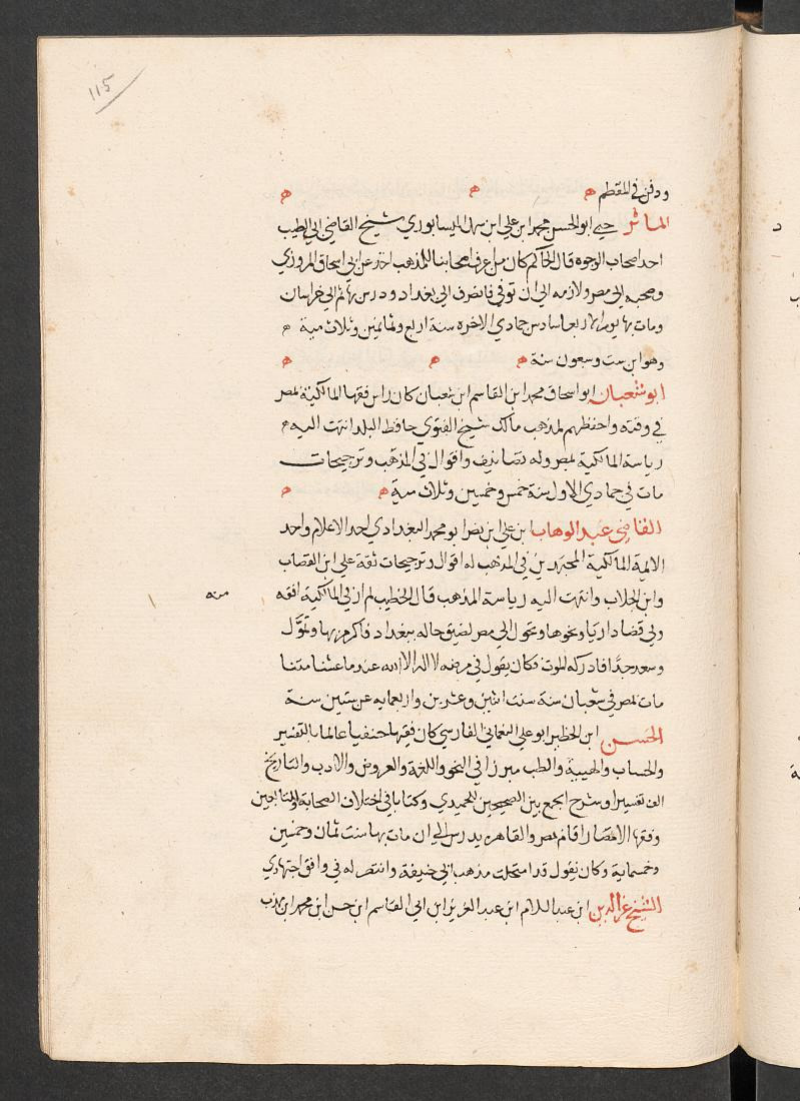 ١١٥
ودفن في المقطم ه ه ه
الماثر جي ابو الحسن محمد ابن علي ابن سهل النيسابوري شيخ القاضي ابي الطيب
احد اصحاب الوجوه قال الحاكم كان من اعرف اصحابنا للمذهب اخذ عن ابي اسحاق المروزي
وصحبه الي مصر ولازمه الي ان توفي فانصرف الي بغداد ودرس بها ثم الي خراسان
ومات بها يوم الاربعا سادس جمادي الاخره سنة اربع وثمانين وثلاث مية ه
وهو ابن ست وسبعون سنة ه ه ه
ابو شعبان ابو اسحاق محمد ابن القاسم ابن شعبان كان راس فقها المالكية بمصر
في وقته واحفظهم لمذهب مالك شيخ الفتوي حافظ البلد انتهت اليه ه
رياسة المالكية بمصر وله تصانيف واقوال في المذهب وترجيحات
مات في جمادي الاول سنة خمس وخمسين وثلاث مية ه ه
القاضي عبد الوهاب ابن علي ابن نصر ابو محمد البغدادي احد الاعلام واحد
الائمة المالكية المجتهدين في المذهب له اقوال وترجيحات ثقة علي ابن القصاب
وابن الجلاب وانتهت اليه رياسة المذهب قال الخطيب لم ار في المالكية افقه
منه
ولي قضا داريا ونحوها وتحول الي مصر لضيق حاله ببغداد فاكرم بها وتمول
وسعد جدا فادركه الموت فكان يقول في مرضه لا اله الا الله عندما عشنا متنا
مات بمصر في شعبان سنة سنت اثنين وعشرين واربعمايه عن ستين سنة
الحسن ابن الخطير ابو علي النعماني الفارسي كان فقيها حنفيا عالما بالتفسير
والحساب والهيية والطب مبرزا في النحو واللغة والعروض والادب والتاريخ
الف تفسيرا وشرح الجمع بين الصحيحين للحميدي وكتابا في اختلاف الصحابة والتابعين
وفقها الامصار اقام بمصر والقاهره يدرس الي ان مات بها سنت ثمان وخمسين
وخمسماية وكان يقول قد انتحلت مذهب ابي حنيفة وانتصر له في وافق اجتهادي
الشيخ عز الدين ابن عبد السلام ابن عبد العزيز ابن ابي القاسم ابن حسن ابن محمد ابن مهذب